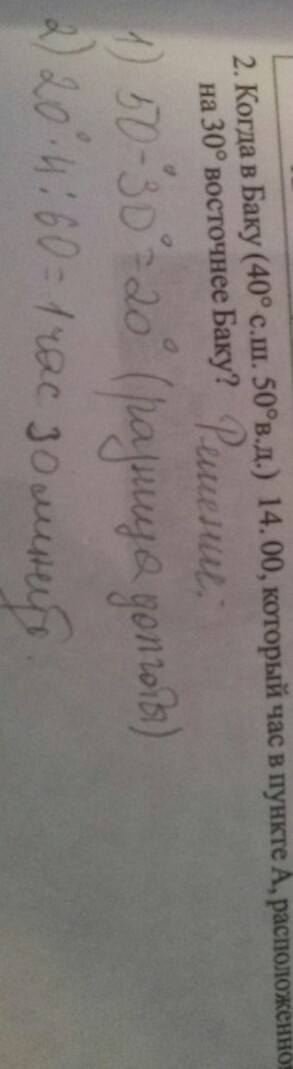 2. Когда в Баку (40° с.ш. 50° в.д.) 14. 00, который час в пункте А, расположенно
на 30° восточнее Баку?
Решение:
1) 50°-30°=20° (разница долготы)
2) 20°·4:60=1 час 30 минут.